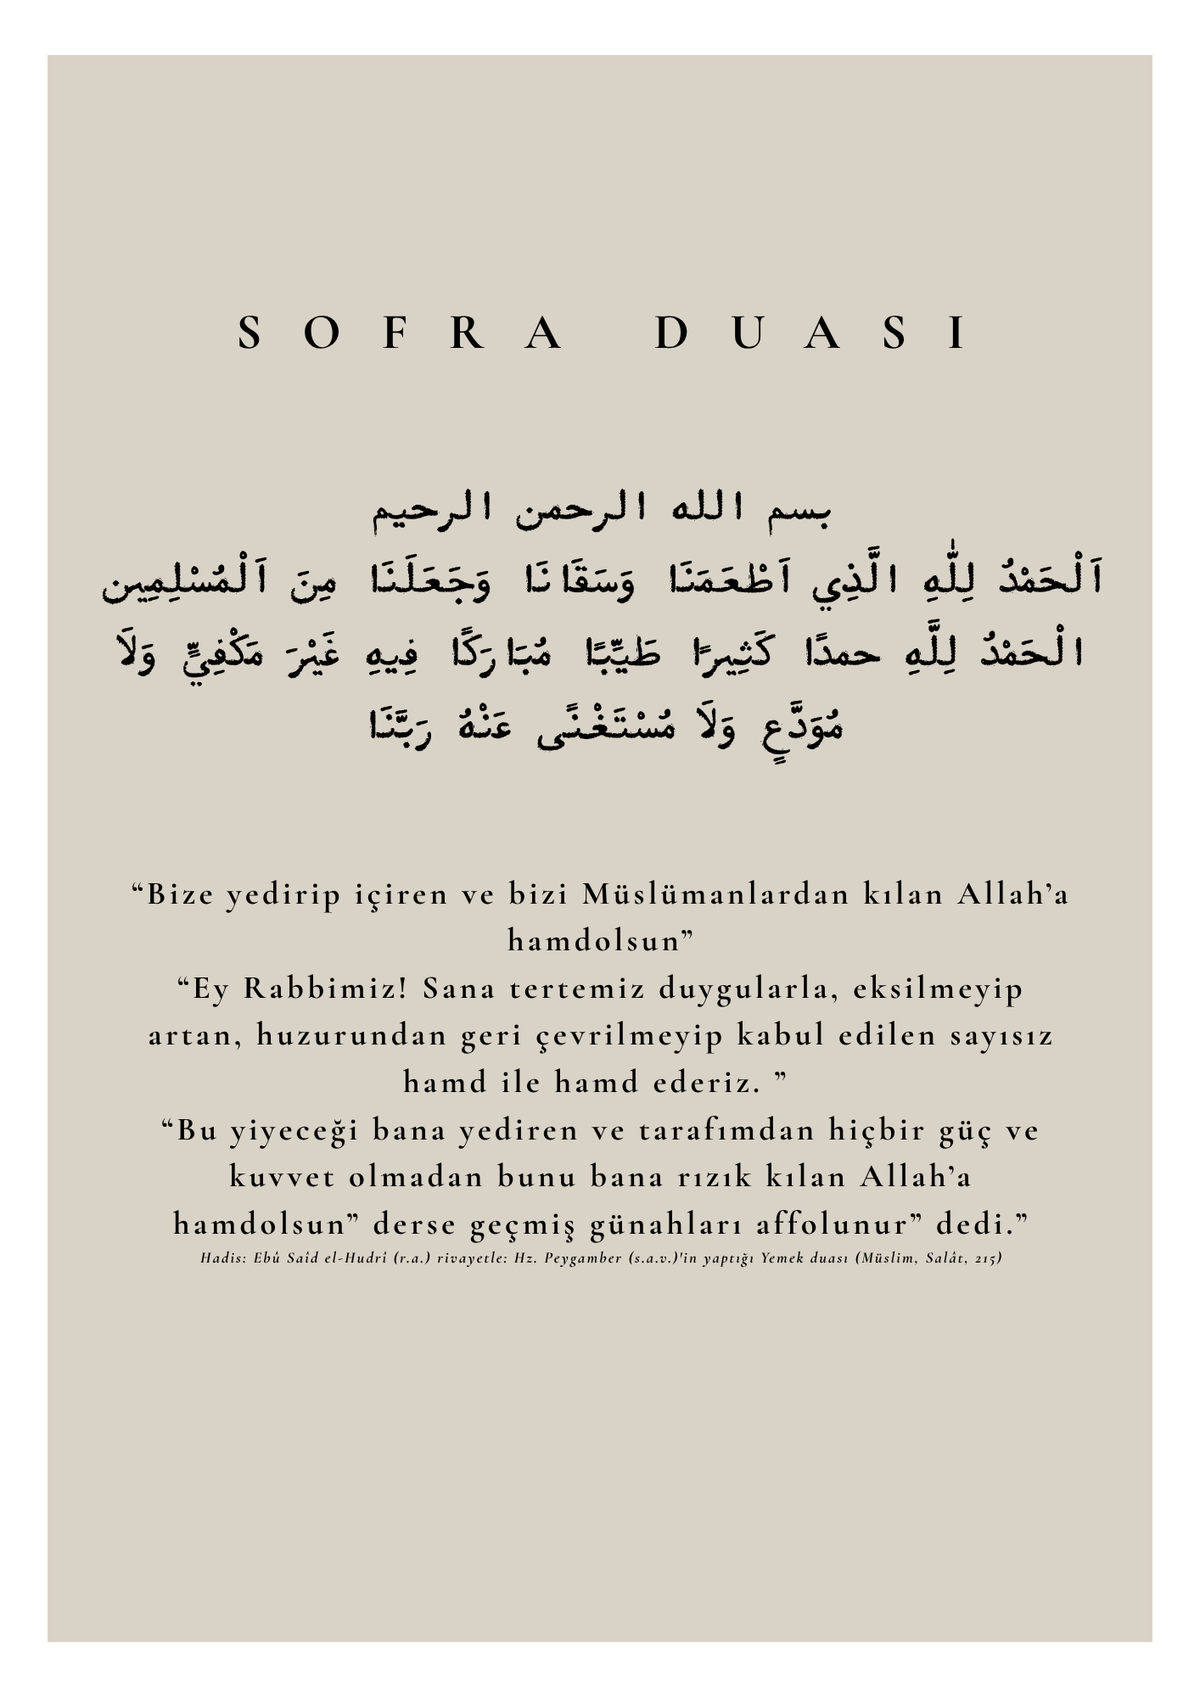 SOFRA DUASI
بسم الله الرحمن الرحيم
اَلْحَمْدُ لِلّٰهِ الَّذِي اَطْعَمَنَا وَسَقَانَا وَجَعَلَنَا مِنَ اَلْمُسْلِمِين
الْحَمْدُ لِلَّهِ حمدًا كَثِيرًا طَيِّبًا مُبَارَكًا فِيهِ غَيْرَ مَكْفِيٍّ وَلَا
مُوَدَّعٍ وَلَا مُسْتَغْنًى عَنْهُ رَبَّنَا
“Bize yedirip içiren ve bizi Müslümanlardan kılan Allah’a
hamdolsun”
“Ey Rabbimiz! Sana tertemiz duygularla, eksilmeyip
artan, huzurundan geri çevrilmeyip kabul edilen sayısız
hamd ile hamd ederiz. ”
“Bu yiyeceği bana yediren ve tarafımdan hiçbir güç ve
kuvvet olmadan bunu bana rızık kılan Allah’a
hamdolsun” derse geçmiş günahları affolunur” dedi.”
Hadis: Ebû Saîd el-Hudrî (r.a.) rivayetle: Hz. Peygamber (s.a.v.)'in yaptığı Yemek duası (Müslim, Salât, 215)